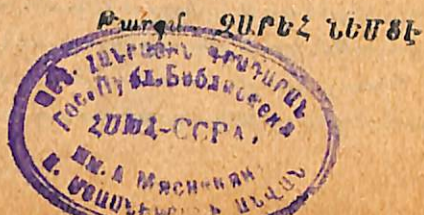 Թարգմ. ԶԱՐԵՀ ՆԵՄՑԷ
ՊԵՏ. ՀԱՆՐԱՅԻՆ ԳՐԱԴԱՐԱՆ
Гос. Публ. Библиотека
ՀՍԽՀ-ССРА,
им. А Мясникян
Ա. ՄՅԱՍՆԻԿՅԱՆԻ ԱՆՎԱՆ